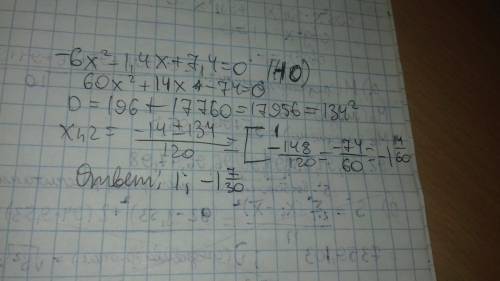 -6x² - 1,4x + 7,4 = 0 (·10)
60x² + 14x - 74 = 0
D = 196 + 17760 = 17956 = 134²
x₁,₂ = (-14 ± 134)/120 = [ 1; -148/120 = -74/60 = -1 14/60
Ответ: 1; -1 7/30